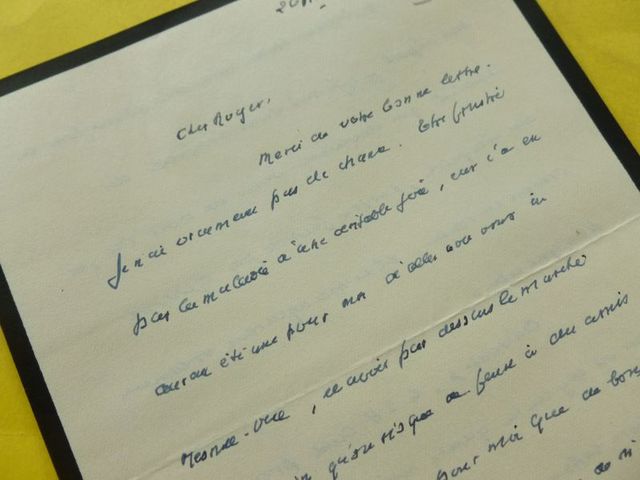 Cher Roger,
Merci de votre bonne lettre.
Je n'ai vraiment pas de chance. Etre frustré
par la maladie d'une véritable joie, car c'en
aurait été une pour moi d'aller vous voir
, se avoir par dessus le marché
qu'on risque de faire à des amis
pour moi que de bons
de